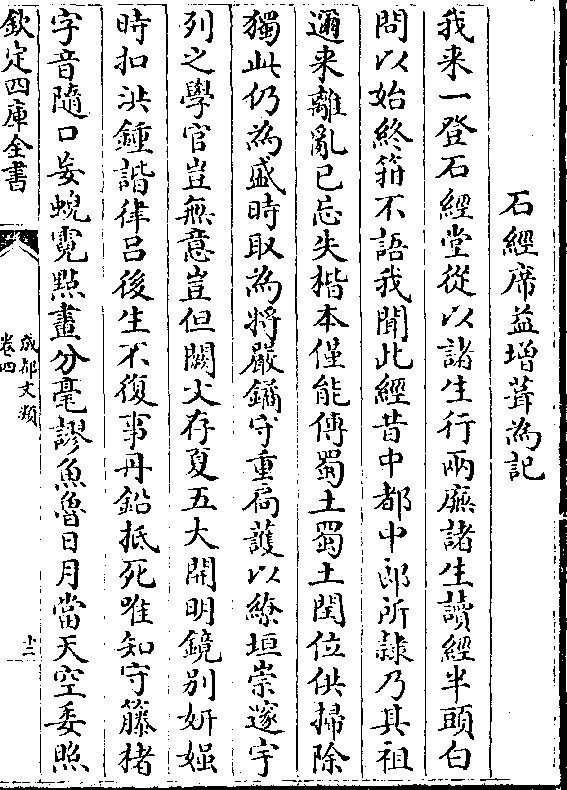 石經席益增葺為記
我来一登石經堂從以諸生行兩廡諸生讀經半頭白
問以始終箝不語我聞此經昔中都中郎所隷乃其祖
邇来離亂已忘失楷本僅能傳蜀土蜀土閏位供掃除
獨此仍為盛時取為將嚴鐍守重扃護以繚垣崇邃宇
列之學官豈無意豈但闕文存夏五大開明鏡別妍媸
時扣洪鍾諧律吕後生不復事丹鉛抵死唯知守藤楮
字音隨口妄蜺霓㸃畫分毫謬魚魯日月當天空委照
欽定四庫全書
成都文類
卷四
十二